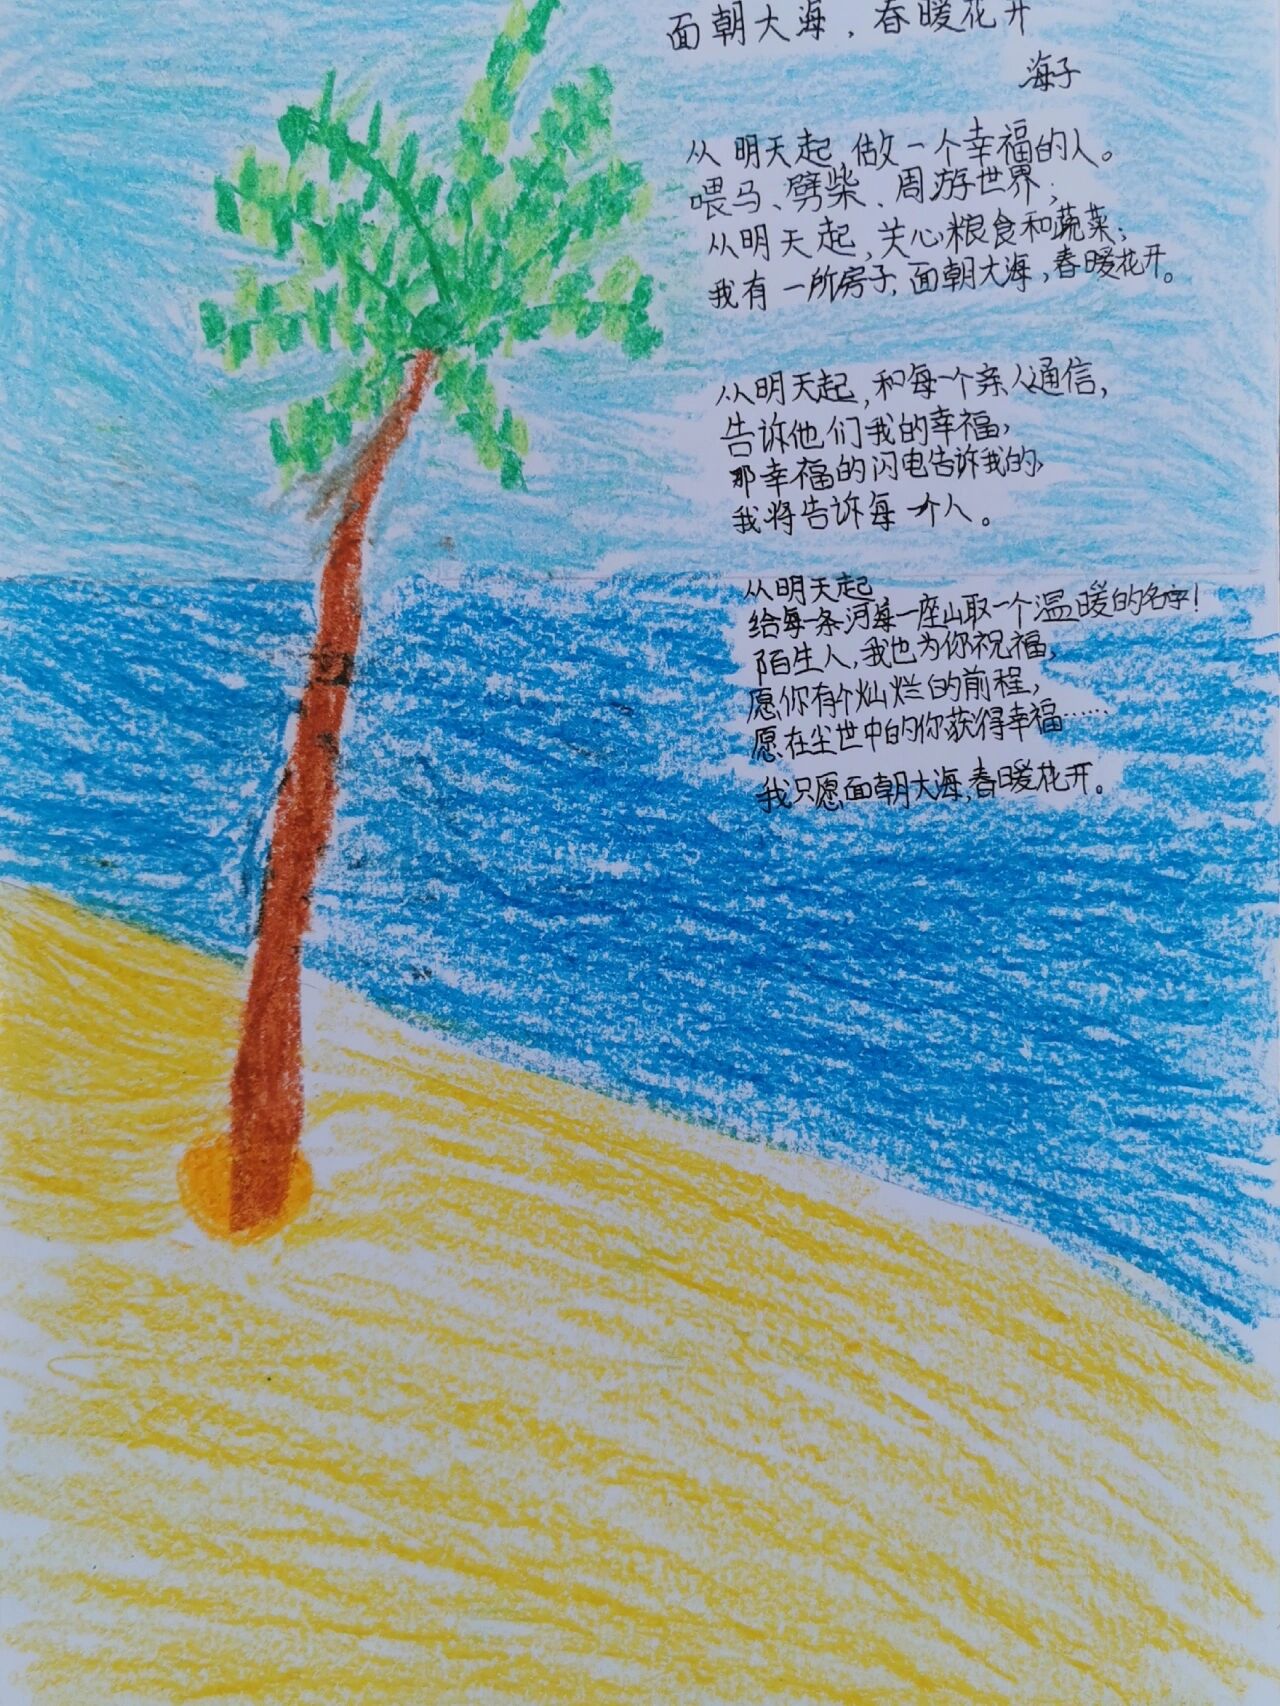 面朝大海，春暖花开
海子
从明天起，做一个幸福的人。
喂马、劈柴、周游世界；
从明天起，关心粮食和蔬菜；
我有一所房子，面朝大海，春暖花开。
从明天起，和每一个亲人通信，
告诉他们我的幸福，
那幸福的闪电告诉我的，
我将告诉每一个人。
从明天起，
给每一条河每一座山取一个温暖的名字！
陌生人，我也为你祝福，
愿你有个灿烂的前程，
愿在尘世中的你获得幸福……
我只愿面朝大海，春暖花开。